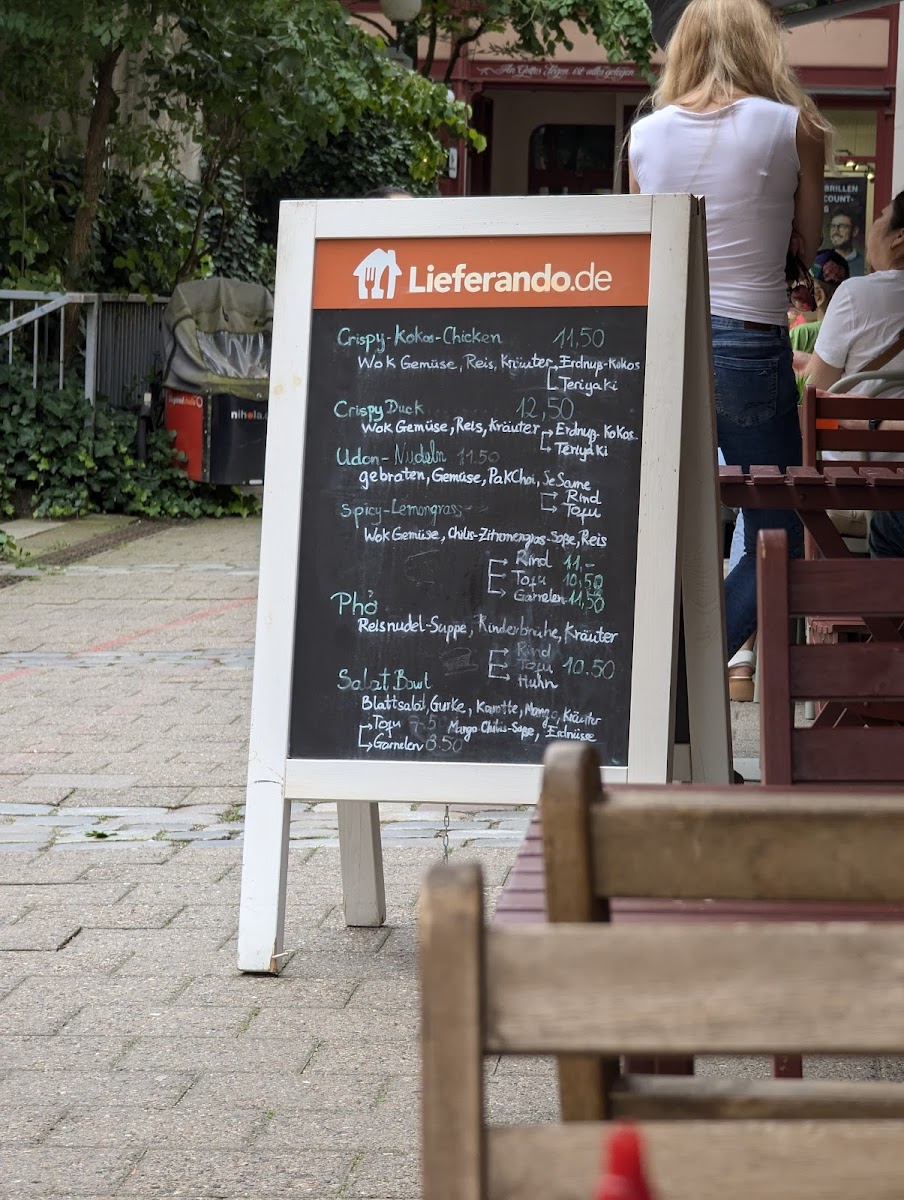 An Gottes Segen ist alles gelegen
BRILLEN
COUNT-
Lieferando.de
Crispy-Kokos-Chicken 11,50
Wok Gemüse, Reis, Kräuter → Erdnuß-Kokos
→ Teriyaki
Crispy Duck 12,50
Wok Gemüse, Reis, Kräuter → Erdnuß-Kokos
→ Teriyaki
Udon-Nudeln 11.50
gebraten, Gemüse, PakChoi, SeSame
→ Rind
→ Tofu
Spicy-Lemongrass
Wok Gemüse, Chilis-Zitronengras-Soße, Reis
→ Rind 11,-
→ Tofu 10,50
→ Garnelen 11,50
Phở
Reisnudel-Suppe, Rinderbrühe, Kräuter
→ Rind
→ Tofu 10.50
→ Huhn
Salat Bowl
Blattsalat, Gurke, Karotte, Mango, Kräuter
→ Tofu Mango Chilis-Soße, Erdnüsse
→ Garnelen 8.50
nihola.